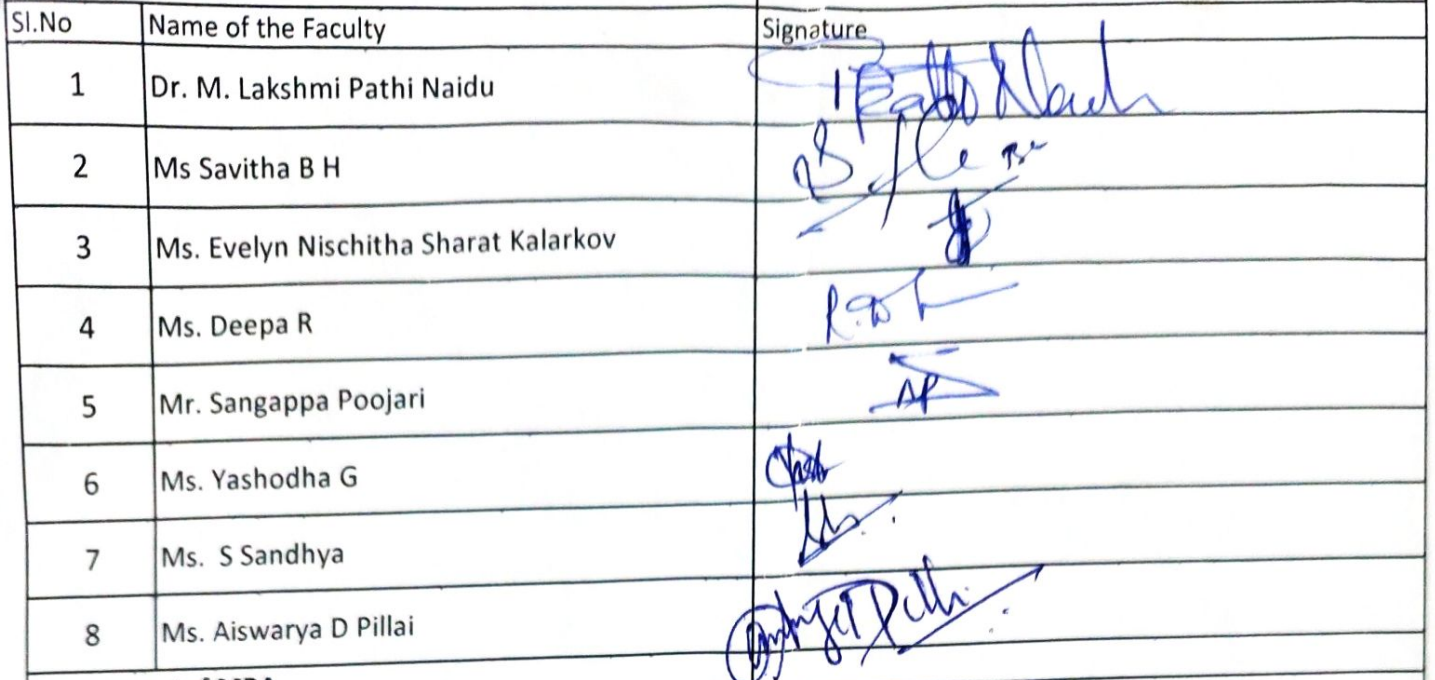 Sl.No Name of the Faculty Signature
1 Dr. M. Lakshmi Pathi Naidu
2 Ms Savitha B H
3 Ms. Evelyn Nischitha Sharat Kalarkov
4 Ms. Deepa R
5 Mr. Sangappa Poojari
6 Ms. Yashodha G
7 Ms. S Sandhya
8 Ms. Aiswarya D Pillai